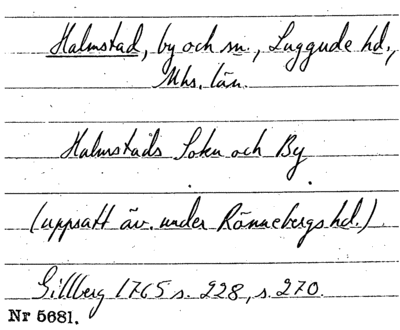 Halmstad, by och sn., Luggude hd.,
Mhs. län.
Halmstads Soken och By
(uppsatt äv. under Rönnebergs hd.)
Gillberg 1765 s. 228, s. 270.
Nr 5681.